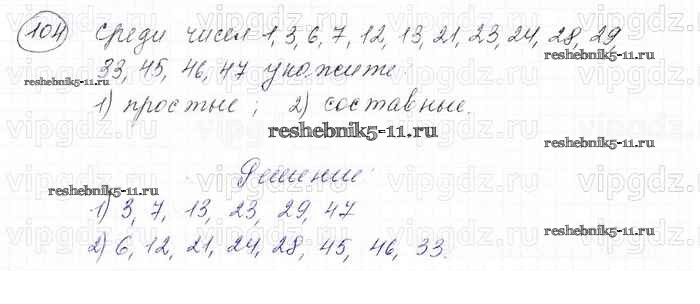 104 Среди чисел 1, 3, 6, 7, 12, 13, 21, 23, 24, 28, 29,
33, 45, 46, 47 укажите
1) простые; 2) составные.
Решение
1) 3, 7, 13, 23, 29, 47
2) 6, 12, 21, 24, 28, 45, 46, 33.
vipgdz.ru
reshebnik5-11.ru
reshebnik5-11.ru
reshebnik5-11.ru
reshebnik5-11.ru
reshebnik5-11.ru